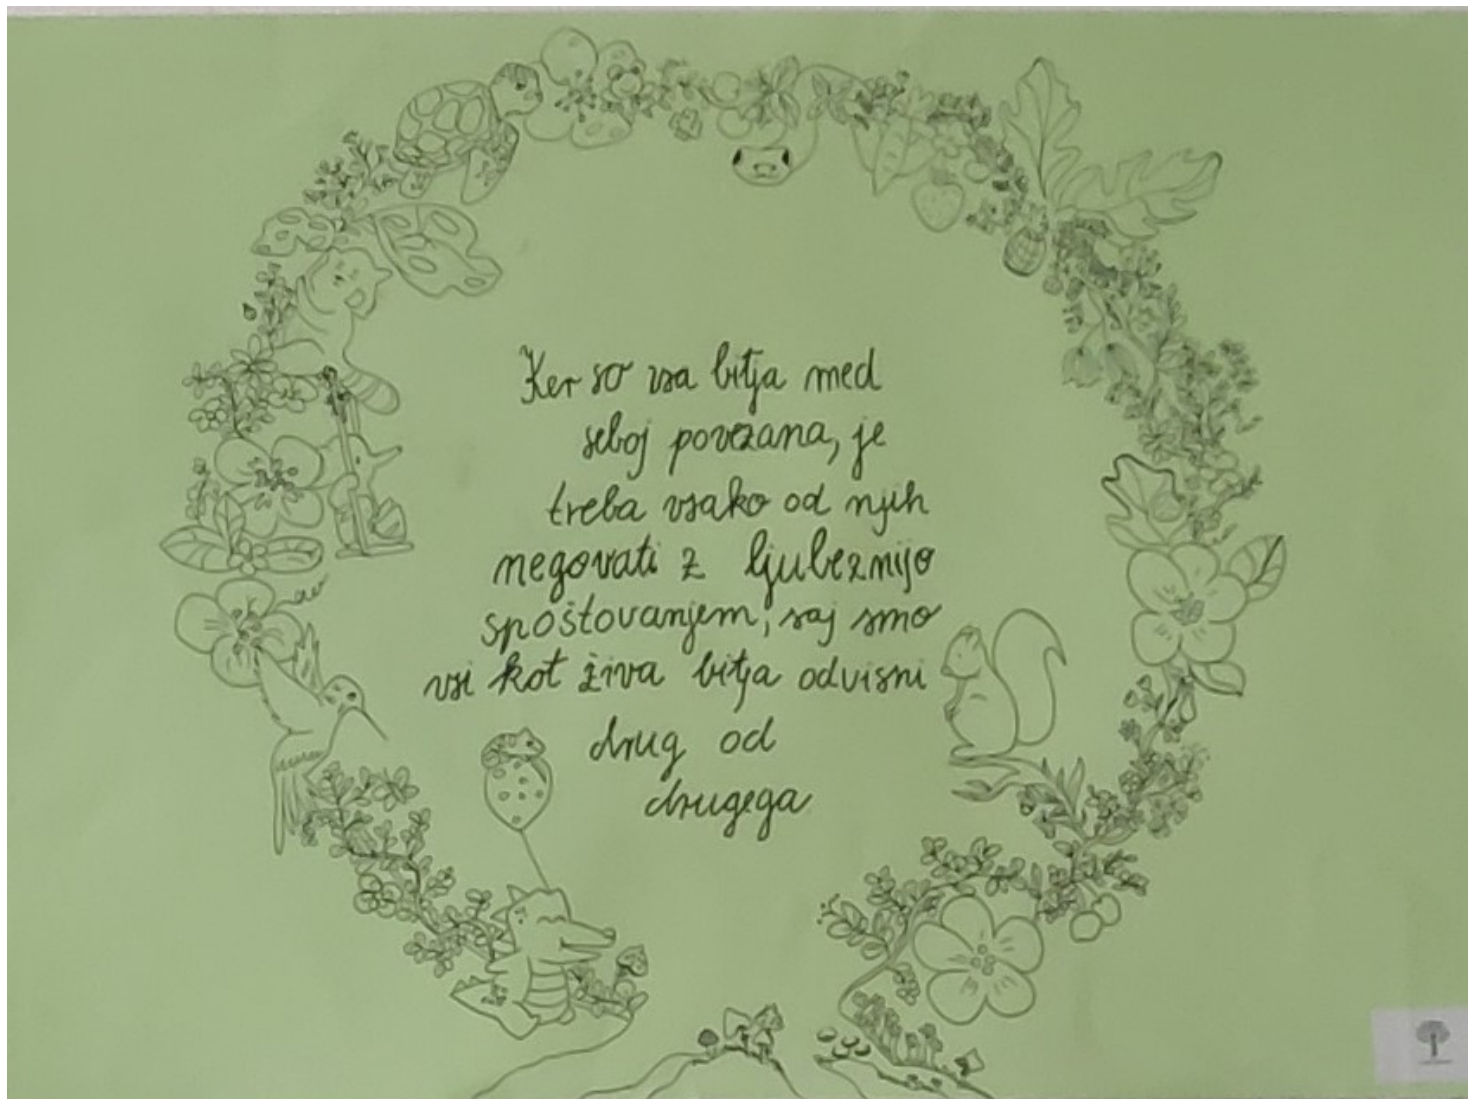 Ker so vsa bitja med
seboj povezana, je
treba vsako od njih
negovati z ljubeznijo
spoštovanjem, saj smo
vsi kot živa bitja odvisni
drug od
drugega